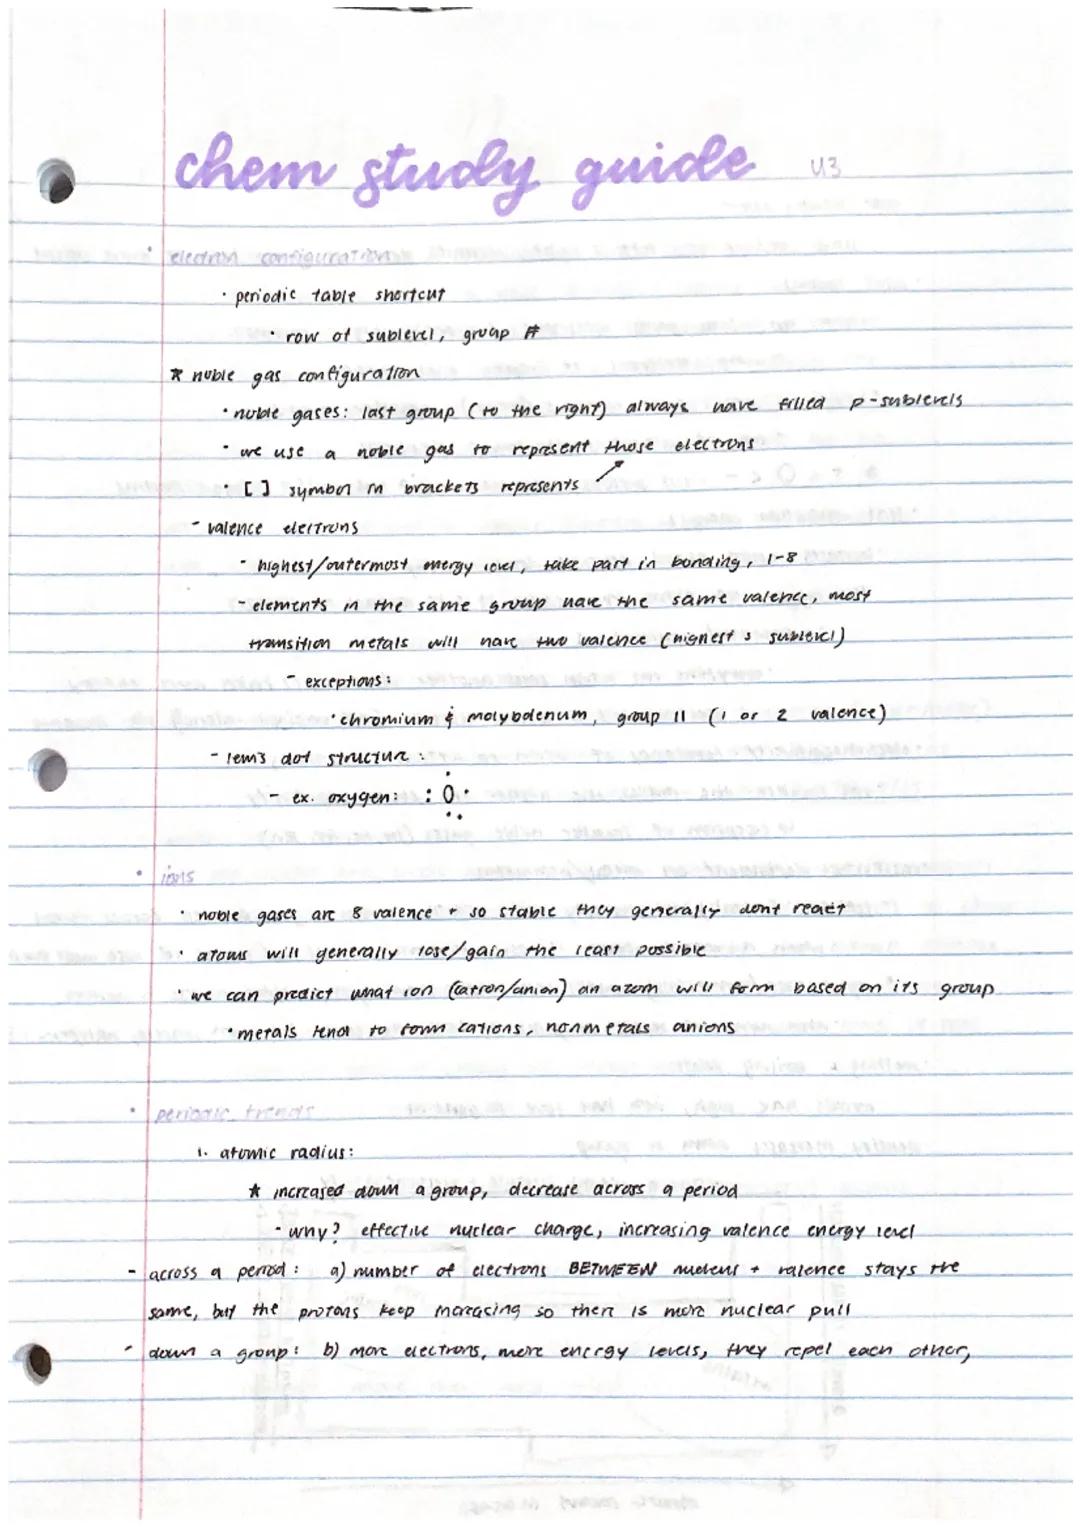 chem study guide U3
• electron configuration
• periodic table shortcut
• row of sublevel, group #
* noble gas configuration
• noble gases: last group (to the right) always have filled p-sublevels
• we use a noble gas to represent those electrons
• [ ] symbol in brackets represents ↗
- valence electrons
- highest/outermost energy level, take part in bonding, 1-8
- elements in the same group have the same valence, most
transition metals will have two valence (highest s sublevel)
- exceptions:
• chromium & molybdenum, group 11 (1 or 2 valence)
- lewis dot structure:
- ex. oxygen: :O:
• ions
• noble gases are 8 valence + so stable they generally dont react
• atoms will generally lose/gain the least possible
• we can predict what ion (cation/anion) an atom will form based on its group
• metals tend to form cations, nonmetals anions
• periodic trends
1. atomic radius:
* increased down a group, decrease across a period
- why? effective nuclear charge, increasing valence energy level
- across a period: a) number of electrons BETWEEN nucleus + valence stays the
same, but the protons keep increasing so there is more nuclear pull
- down a group: b) more electrons, more energy levels, they repel each other,